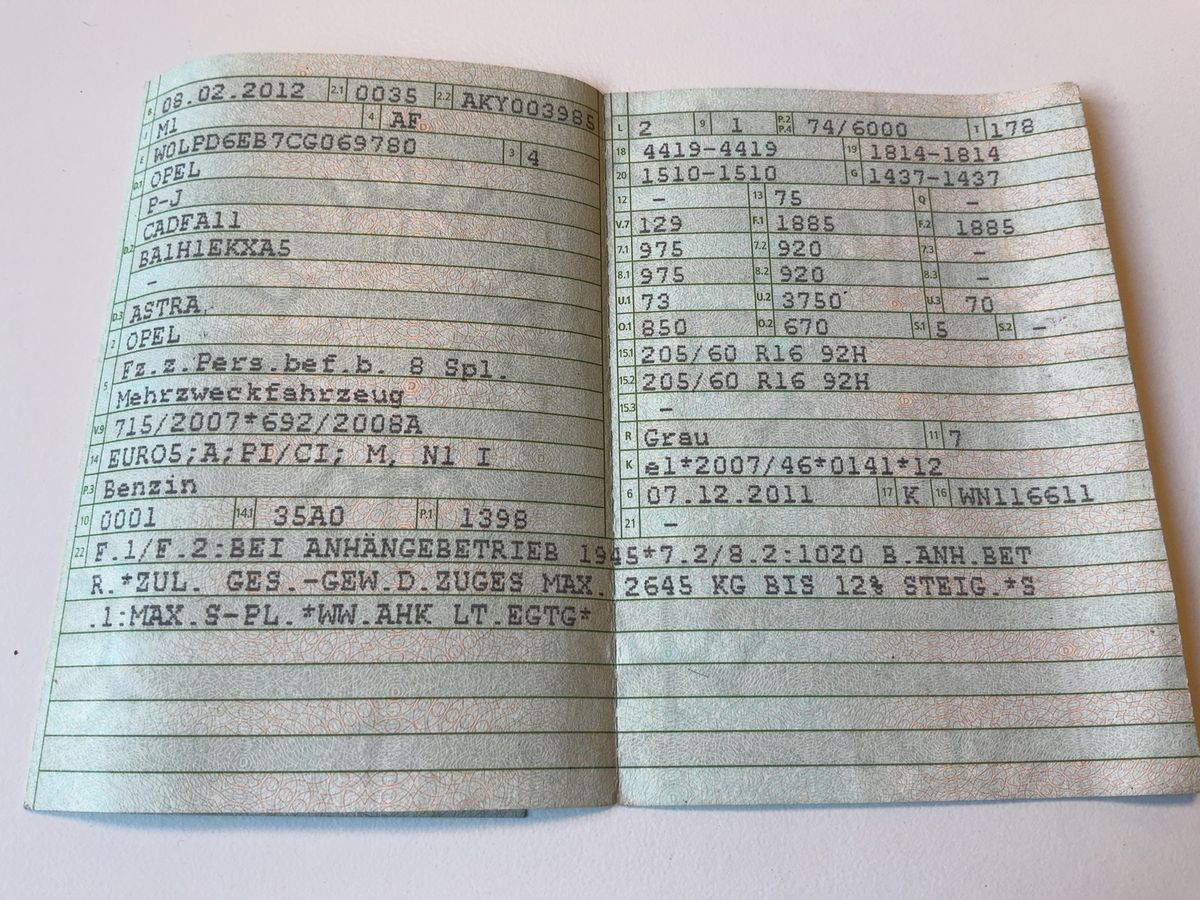 B 08.02.2012 2.1 0035 2.2 AKY003985
J M1 4 AF
E W0LPD6EB7CG069780 3 4
D.1 OPEL
P-J
D.2 CADFA11
BA1H1EKXA5
-
D.3 ASTRA
2 OPEL
5 Fz.z.Pers.bef.b. 8 Spl.
Mehrzweckfahrzeug
V.9 715/2007*692/2008A
14 EURO5;A;PI/CI; M, N1 I
P.3 Benzin
10 0001 14.1 35A0 P.1 1398
L 2 9 1 P.2 P.4 74/6000 T 178
18 4419-4419 19 1814-1814
20 1510-1510 G 1437-1437
12 - 13 75 Q -
V.7 129 F.1 1885 F.2 1885
7.1 975 7.2 920 7.3 -
8.1 975 8.2 920 8.3 -
U.1 73 U.2 3750 U.3 70
O.1 850 O.2 670 S.1 5 S.2 -
15.1 205/60 R16 92H
15.2 205/60 R16 92H
15.3 -
R Grau 11 7
K e1*2007/46*0141*12
6 07.12.2011 17 K 16 WN116611
21 -
22 F.1/F.2:BEI ANHÄNGEBETRIEB 1945*7.2/8.2:1020 B.ANH.BET
R.*ZUL. GES.-GEW.D.ZUGES MAX. 2645 KG BIS 12% STEIG.*S
.1:MAX.S-PL.*WW.AHK LT.EGTG*